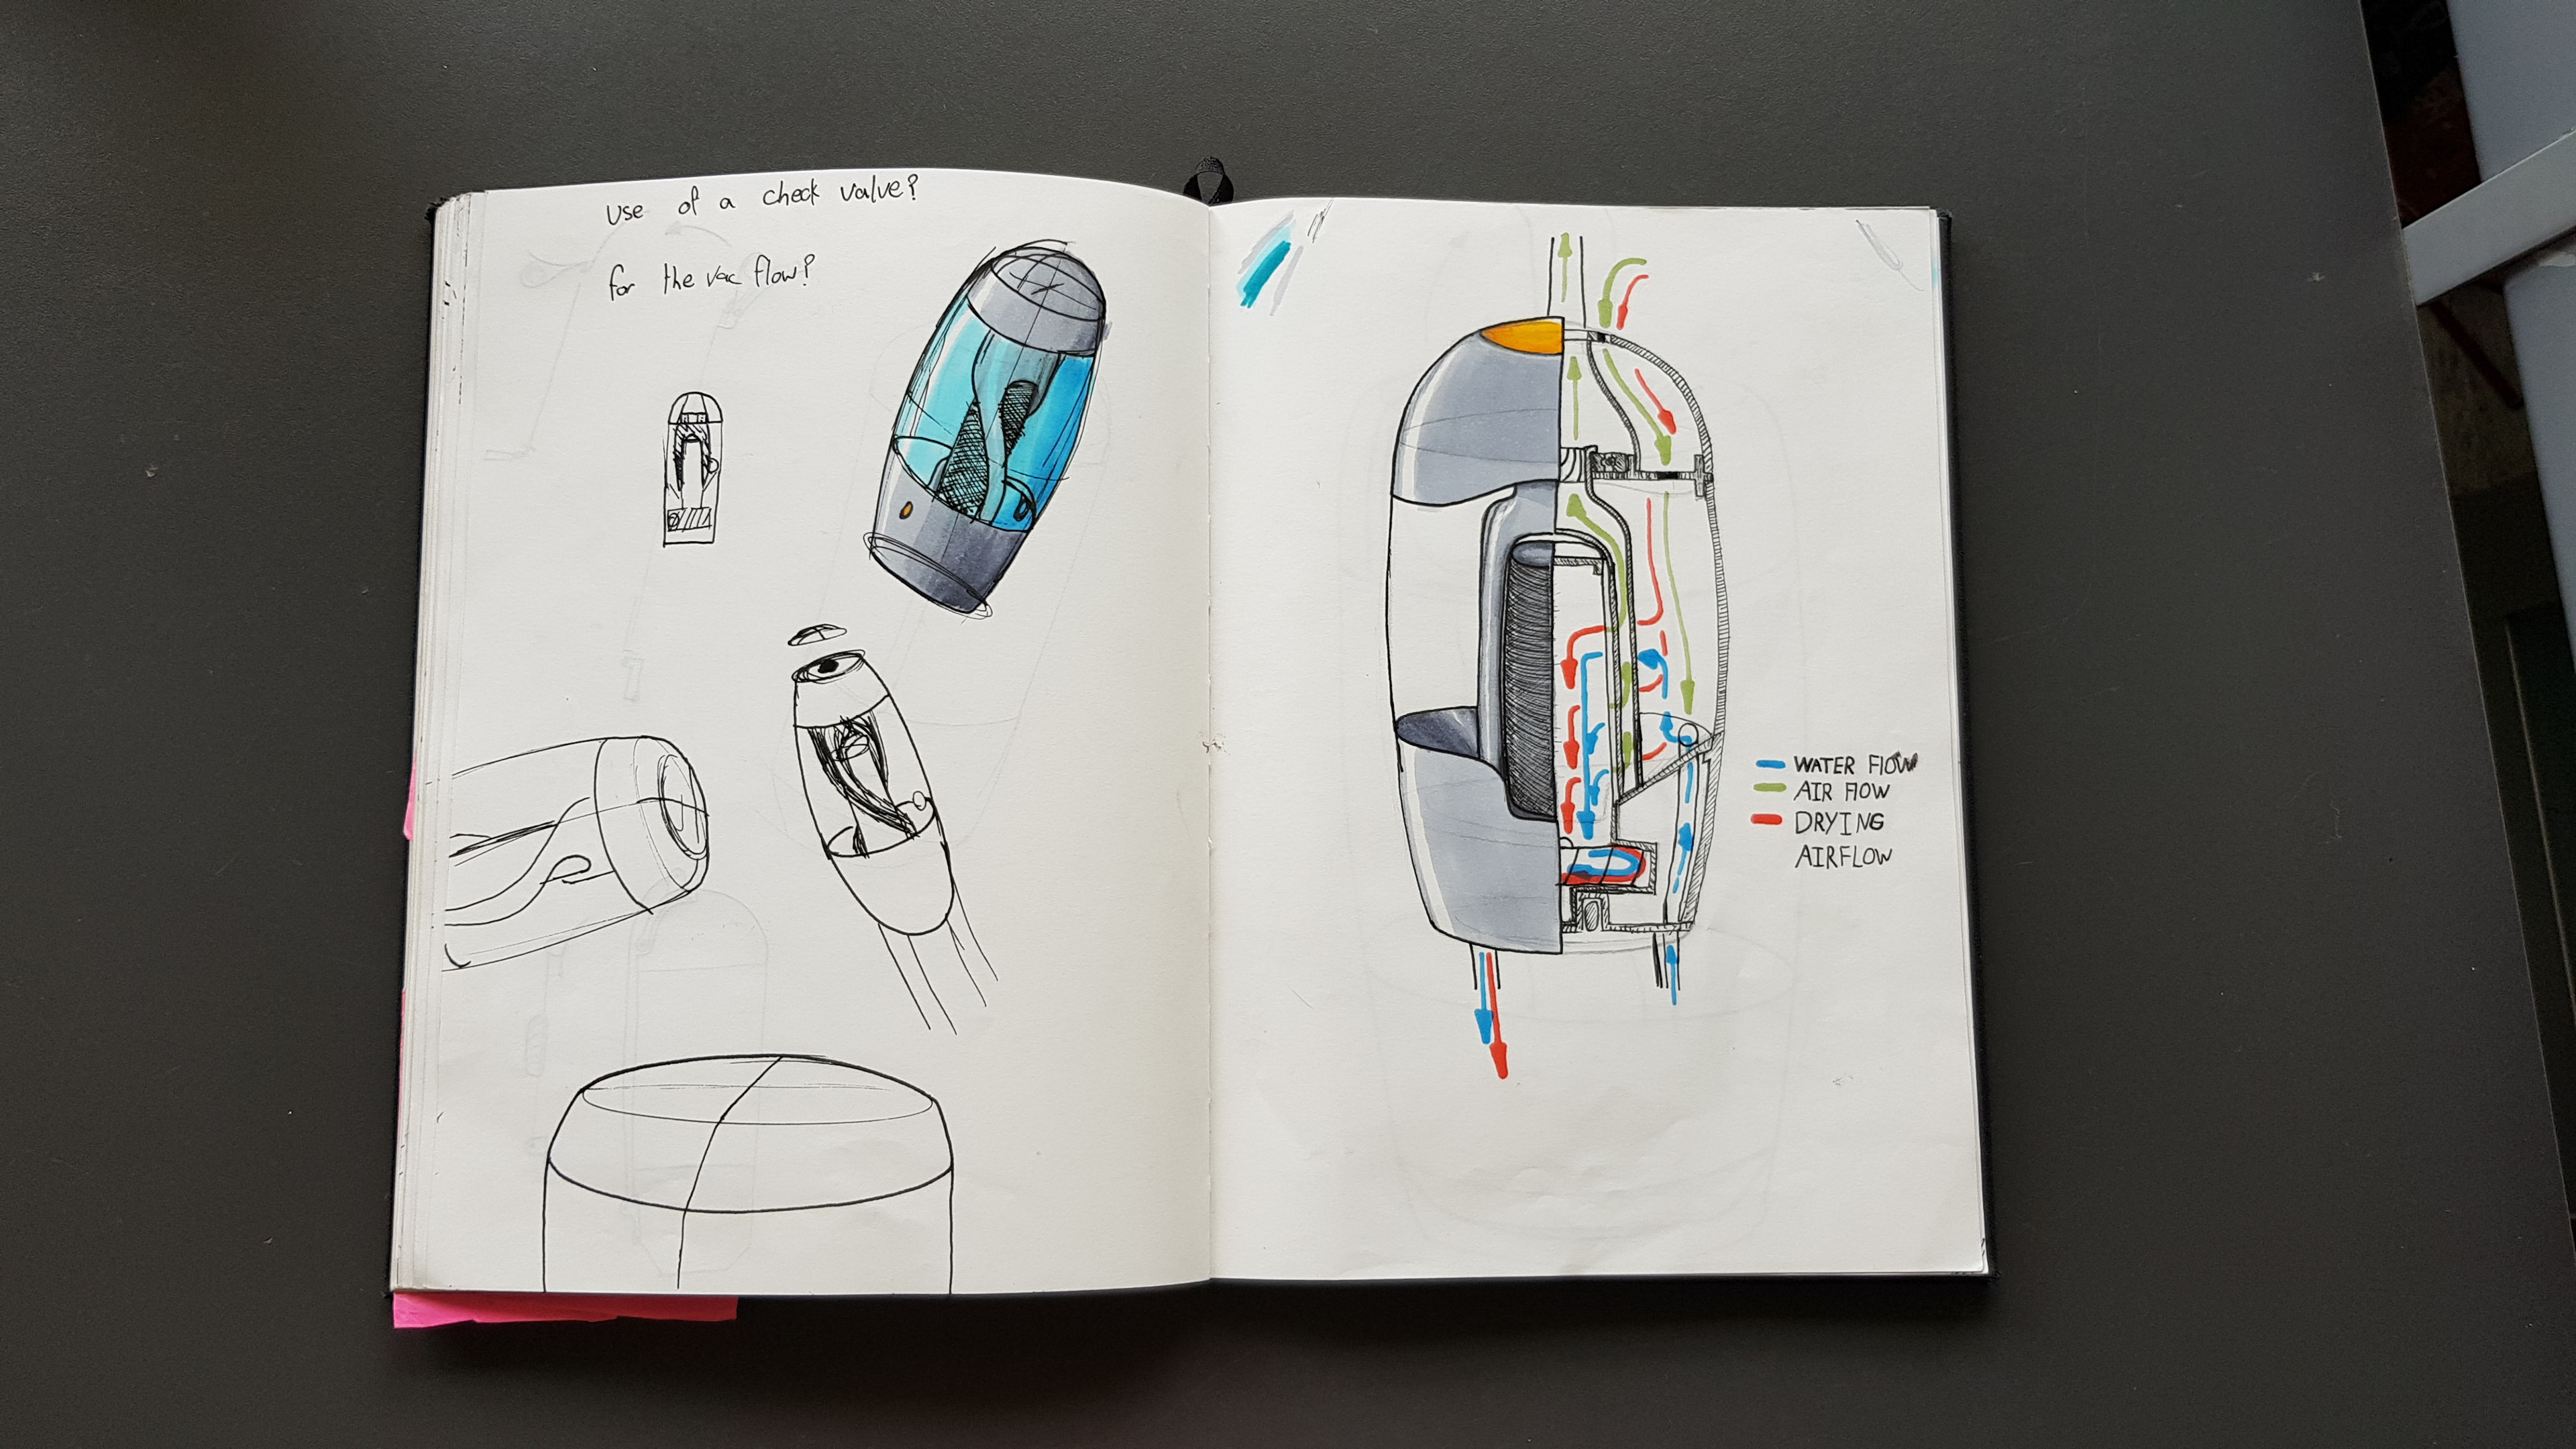 use of a check valve?
for the vac flow?
WATER FLOW
AIR FLOW
DRYING
AIRFLOW